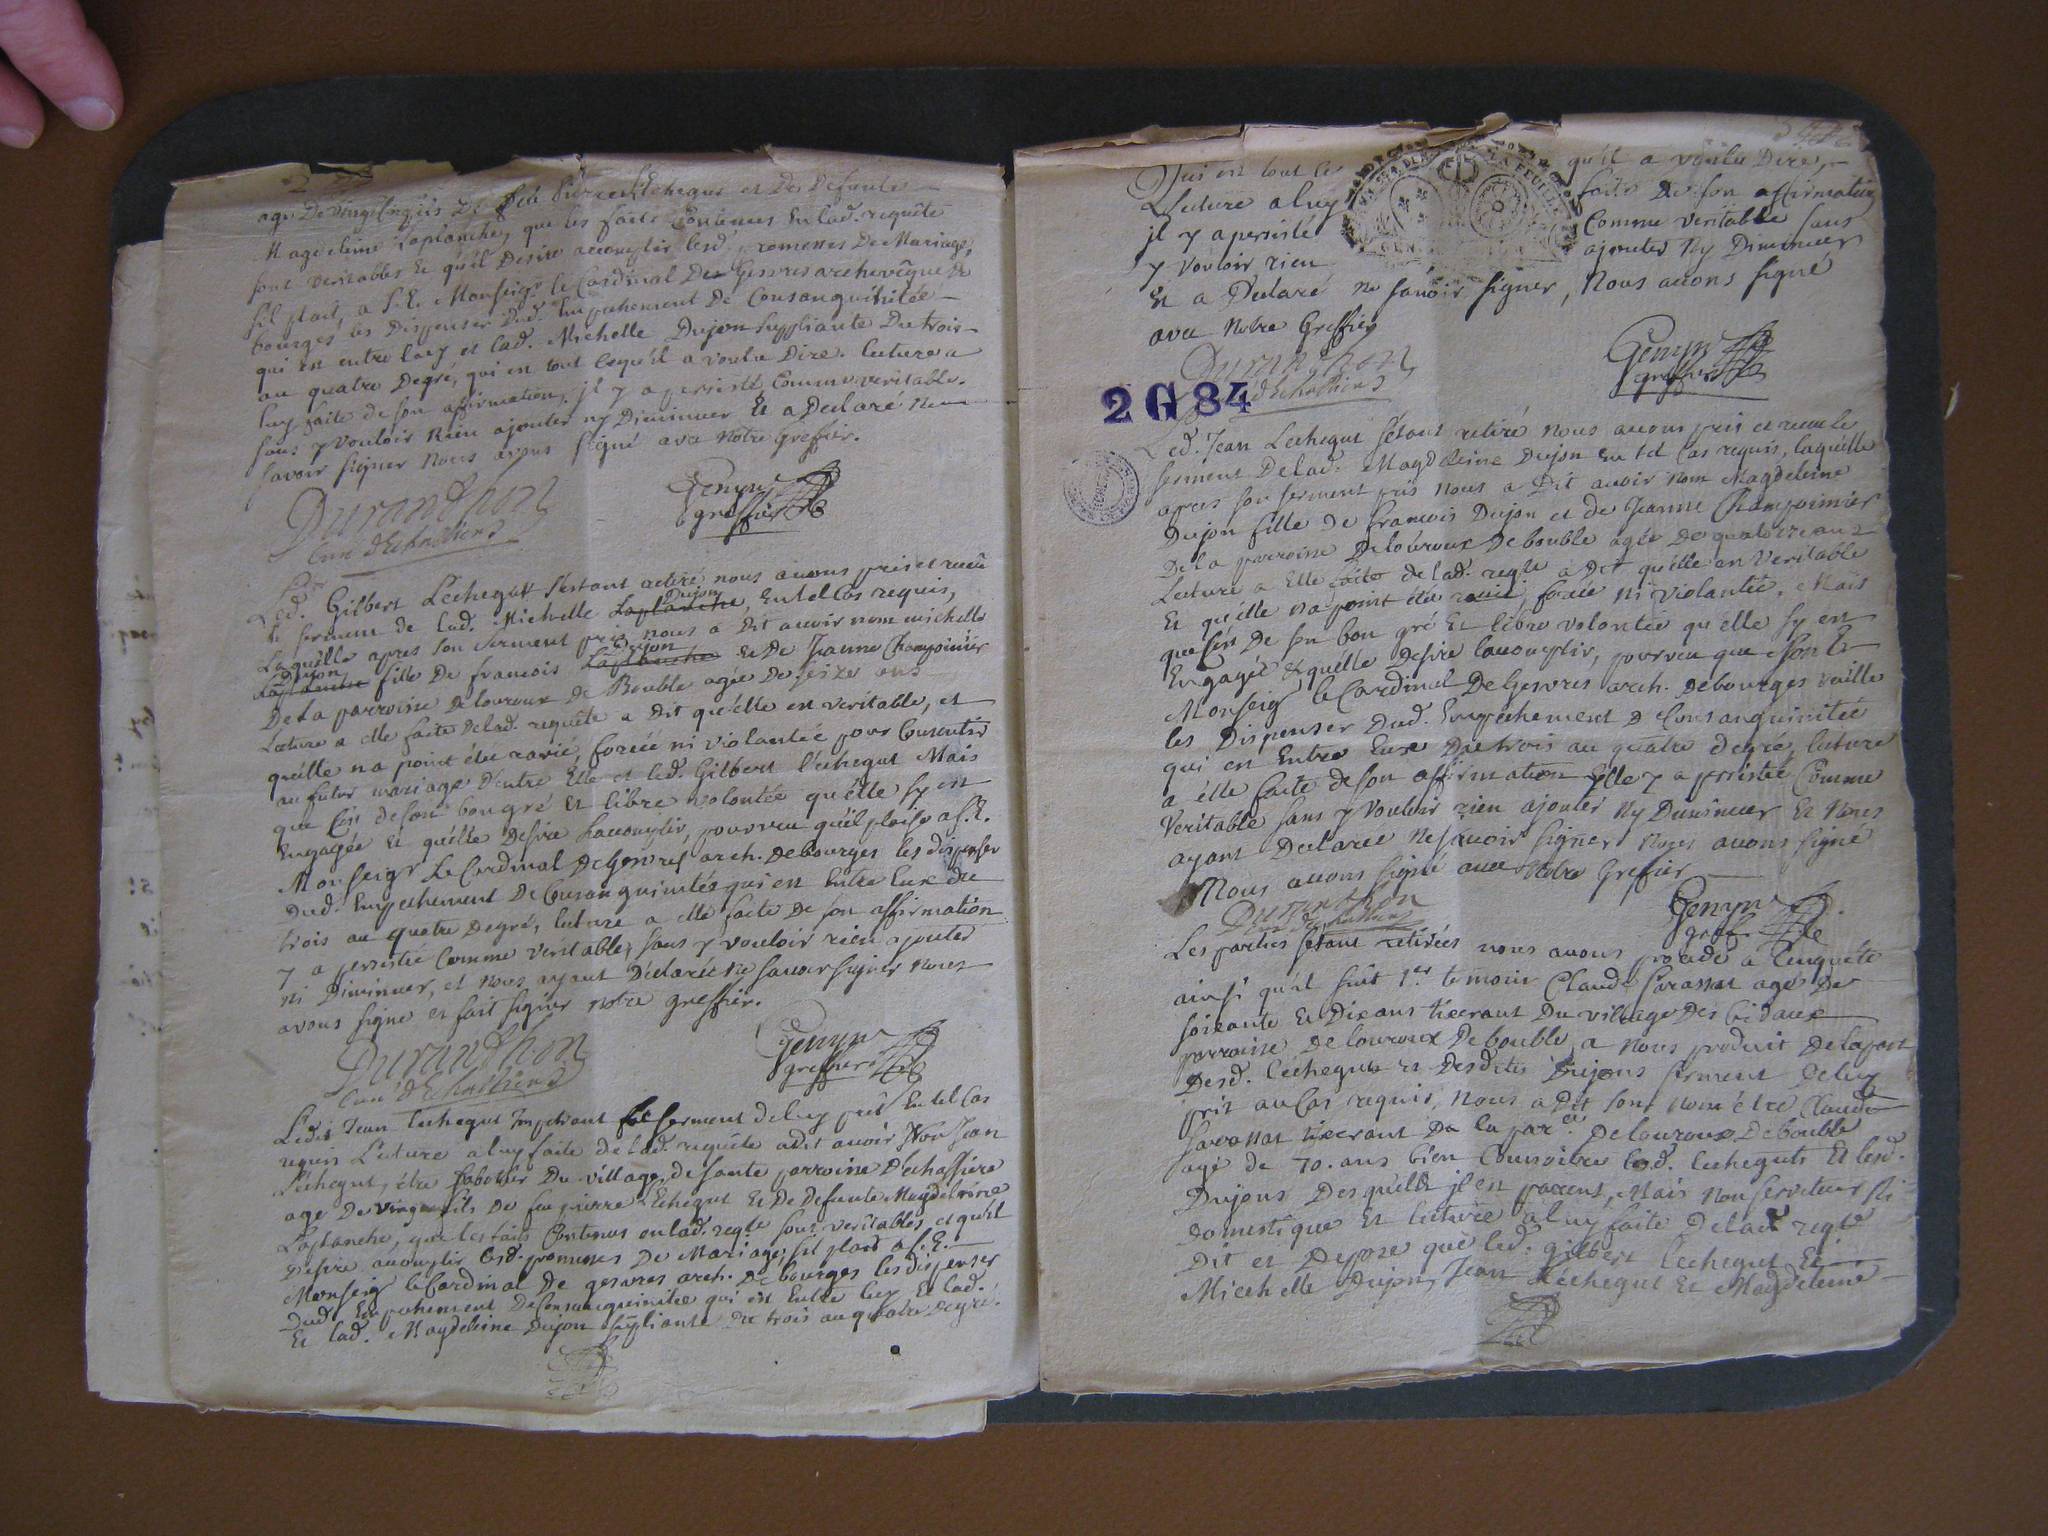 age De Vingt fils De feu Pierre Lechegut et De Defunte
Magdeleine Laplanche, que les faits Contenus En lad. requête
sont veritables Et qu'il Desire accomplir lesd. promesses De Mariage,
s'il plait, a S.E. Monseigr le Cardinal De Gesvres archevêque De
bourges les Dispenser Dud. Empechement De Consanguinitée
qui est entre luy et lad. Michelle Dujon suppliante Du trois
au quatre Degré, qui en tout ce qu'il a voulu Dire. lecture a
luy faite de son affirmation, il y a persisté Comme veritable.
sans y vouloir Rien ajouter ny Diminuer Et a Declaré ne
savoir signer nous avons signé avec notre Greffier.
Duranthon
Curé d'Echassiere
Genyn
greffier
Led. Gilbert Lechegut s'estant retiré nous avons pris et receu
le serment de lad. Michelle Laplanche Dujon, En tel Cas requis,
Laquelle apres son serment pris nous a Dit avoir nom michelle
Laplanche Dujon fille De francois Laplanche Dujon Et De Jeanne Champoinier
De La parroisse De louroux De Bouble agée De seize ans
Lecture a elle faite De lad. requête a Dit qu'elle est veritable, et
quelle na point été ravie, forcée ni violantée pour Consentir
au futur mariage D'entre Elle et led. Gilbert Lechegut Mais
que C'est de son bon gré Et libre volontée qu'elle s'y est
Engagée Et qu'elle Desire Laccomplir, pourveu qu'il plaise a S.E.
Monseigr Le Cardinal De Gesvres arch. De bourges les dispenser
Dud. Empechement De Consanguinitée qui est Entre Eux du
trois au quatre Degré, lecture a elle faite De son affirmation
y a persistée Comme veritable, sans y vouloir rien ajouter
ni Diminuer, et nous ayant Declarée ne savoir signer nous
avons signe et fait signer notre greffier.
Duranthon
Curé d'Echassiere
Genyn
greffier
Ledit Jean Lechegut Impetrant le serment de luy pris En tel Cas
requis Lecture a luy faite de lad. requête a dit avoir Nom Jean
Lechegut, être sabotier Du village de sante parroisse D'echassiere
age De vingt fils De feu pierre Lechegut Et De Defunte Magdeleine
Laplanche, que les faits Contenus en lad. reqte sont veritables et qu'il
Desire accomplir lesd. promesses De Mariage, s'il plait a S.E.
Monseigr le Cardinal De gesvres arch. De bourges les dispenser
Dud Empechement De Consanguinitée qui est Entre luy Et lad.
Et lad. Magdeleine Dujon suppliante Du trois au quatre Degré.
Qui est tout ce qu'il a voulu Dire,
Lecture a luy faite De son affirmation
il y a persisté Comme veritable sans
y vouloir rien ajouter Ny Diminuer
Et a Declaré ne savoir signer, Nous avons signé
avec Notre Greffier
Duranthon
d'Echassiere
Genyn
greffier
2 G 84
Led. Jean Lechegut s'étant retiré nous avons pris et receu le
serment De lad. Magdeleine Dujon En tel Cas requis, laquelle
apres son serment pris nous a Dit avoir nom Magdeleine
Dujon fille De francois Dujon et de Jeanne Champoinier
De la parroisse De louroux De bouble agée De quatorze ans
Lecture a Elle faite de lad. reqte a Dit qu'elle est Veritable
Et qu'elle na point été ravie forcée ni violantée. Mais
que C'est De son bon gré Et libre volontée qu'elle s'y est
Engagée & qu'elle Desire laccomplir, pourveu que son E.
Monseigr le Cardinal De Gesvres arch. De bourges veuille
les Dispenser Dud. Empechement De Consanguinitée
qui est Entre Eux Du trois au quatre degré, lecture
a elle faite de son affirmation Elle y a persistée Comme
Veritable sans y vouloir rien ajouter Ny Diminuer Et Nous
ayant Declaree ne savoir signer Nous avons signé
Nous avons signé avec Notre Greffier
Duranthon
Genyn
greff.
Les parties s'étant retirées nous avons procedé a l'enquête
ainsi qu'il suit 1er temoin Claude Savassat age De
soixante Et Dix ans tixerant Du village Des bidaux
parroisse De louroux De bouble, a nous produit De la part
Desd. Lechegut et Desdites Dujons serment De luy
pris au Cas requis, nous a Dit son nom être Claude
Savassat tixerant De la parse De louroux De bouble
agé de 70. ans bien Connoitre lesd. Lecheguts Et lesd.
Dujons Desquelles il est parent, Mais non serviteur Ni
domestique Et lecture a luy faite De lad. reqte
Dit et Depose que led. gilbert Lechegut Et
Michelle Dujon, Jean Lechegut Et Magdeleine